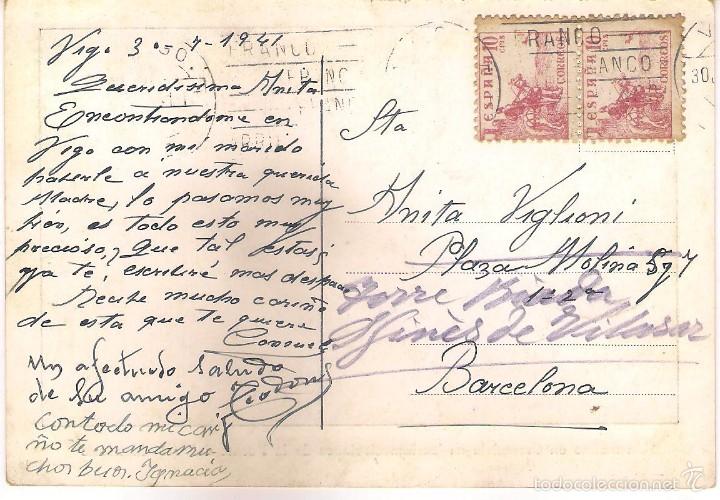 Vigo 3. 7-1941
Queridisima Anita
Encontrandome en
Vigo con mi marido
haverle á nuestra querida
Madre, lo pasamos muy
bien, es todo esto muy
precioso, Que tal estas
ya te escribiré mas despacio
Recibe mucho cariño
de esta que te quiere
Consuelo
Un afectuoso saludo
de su amigo
Con todo mi cari
ño te mandamu
chos besos. Ignacio
FRANCO
FRANCO
FRANCO
RANCO
ANCO
30.
ESPAÑA 10 CTS CORREOS
ESPAÑA 10 CTS CORREOS
Sta
Anita Viglioni
Plaza Molina 5
Torre
Ginès de Vilasar
Barcelona
todocoleccion.net